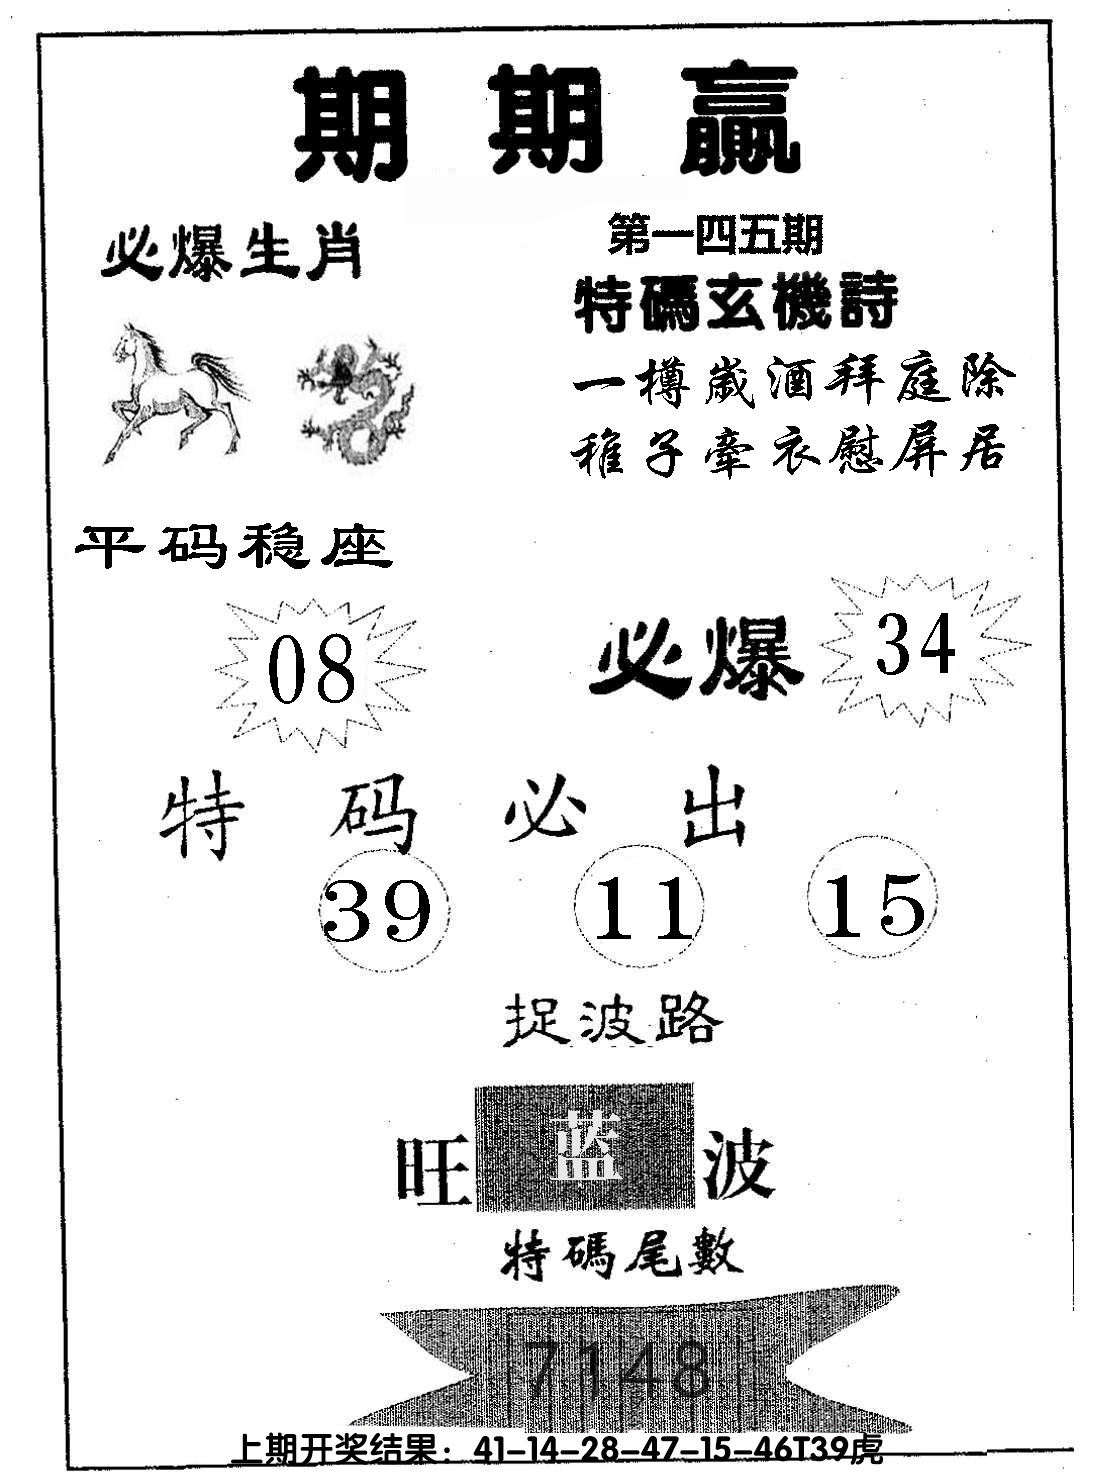 期期贏
必爆生肖
第一四五期
特碼玄機詩
一樽歲酒拜庭除
稚子牽衣慰屏居
平码稳座
08
必爆 34
特码必出
39 11 15
捉波路
旺 蓝 波
特碼尾數
7148
上期开奖结果：41-14-28-47-15-46T39虎